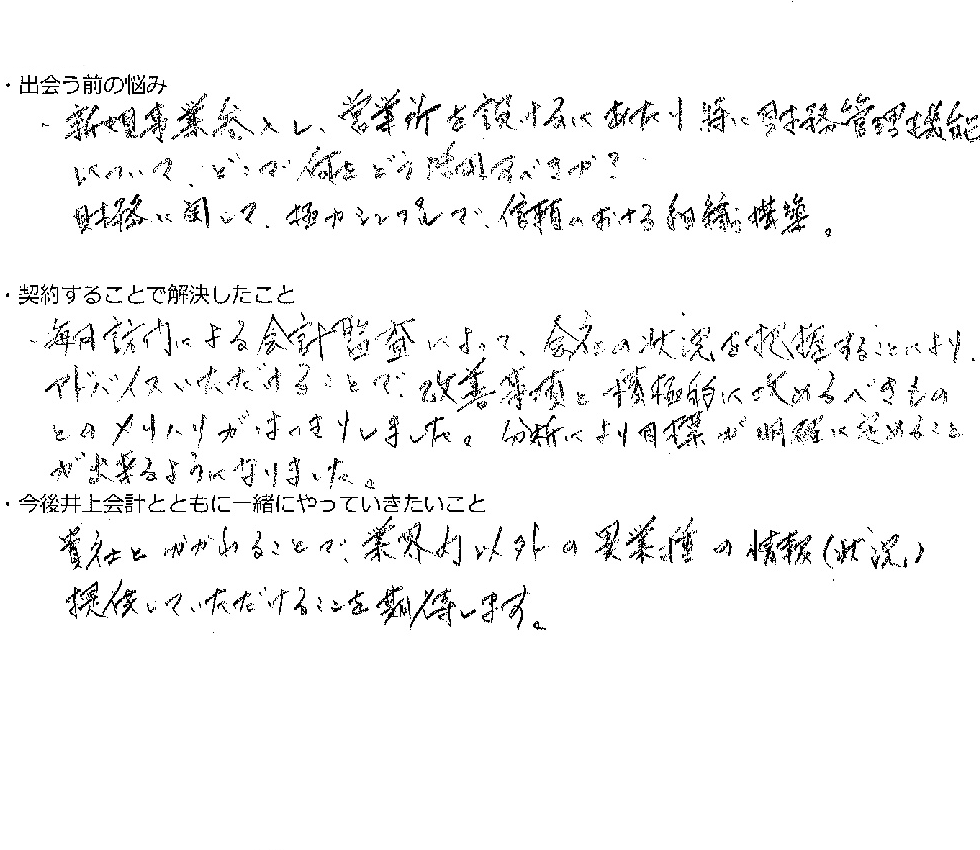 ・出会う前の悩み
・新規事業参入し、営業所を設けるにあたり特に財務管理機能
について、どこで何をどうすべきか？
財務に関して、極力シンプルで、信頼のおける組織構築。
・契約することで解決したこと
・毎月訪問による会計監査によって、会社の状況を把握することにより、
アドバイスいただけることで、改善事項と積極的に攻めるべきもの
とのメリハリがはっきりしました。分析により目標が明確に定めること
が出来るようになりました。
・今後井上会計とともに一緒にやっていきたいこと
貴社とかかわることで、業界内以外の異業種の情報(状況)
提供していただけることを期待します。